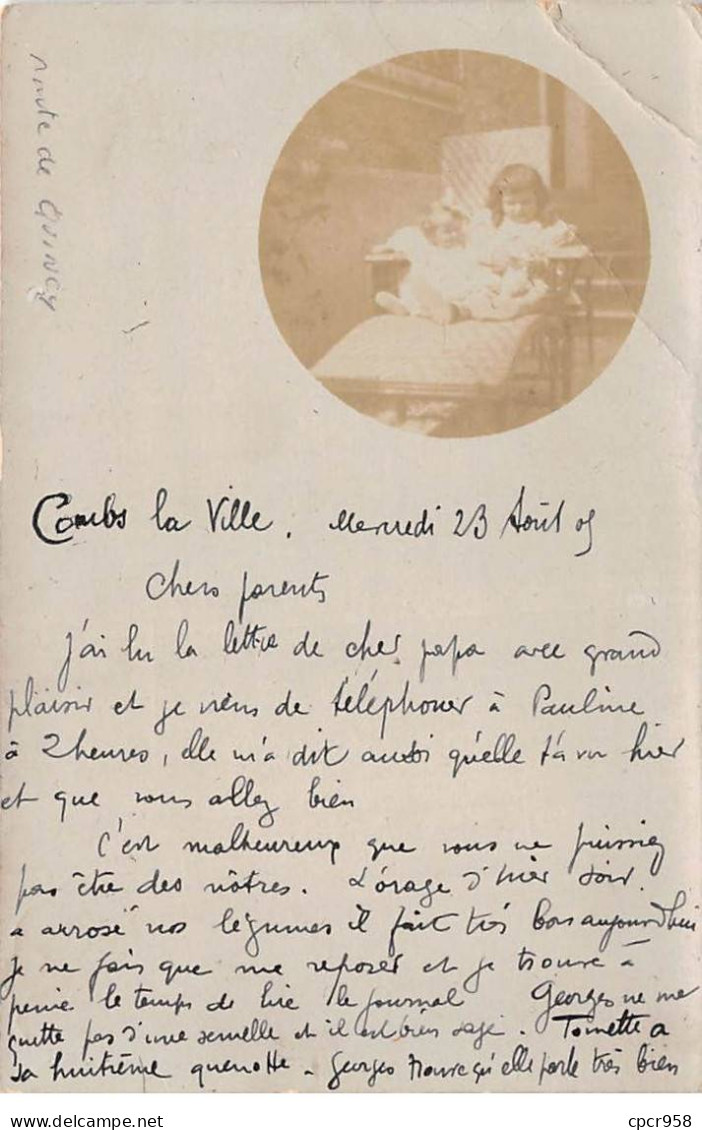 route de QUINCY
Combs la Ville, Mercredi 23 Août 05
Chers parents
j'ai lu la lettre de cher papa avec grand
plaisir et je viens de téléphoner à Pauline
à 2 heures, elle m'a dit aussi qu'elle t'a vu hier
et que vous allez bien
C'est malheureux que vous ne puissiez
pas être des nôtres. L'orage d'hier soir
a arrosé nos légumes il fait très bon aujourd'hui
Je ne fais que me reposer et je trouve à
peine le temps de lire le journal Georges ne me
quitte pas d'une semelle et il est bien sage. Toinette a
sa huitième quenotte. Georges trouve qu'elle parle très bien
cpcr958